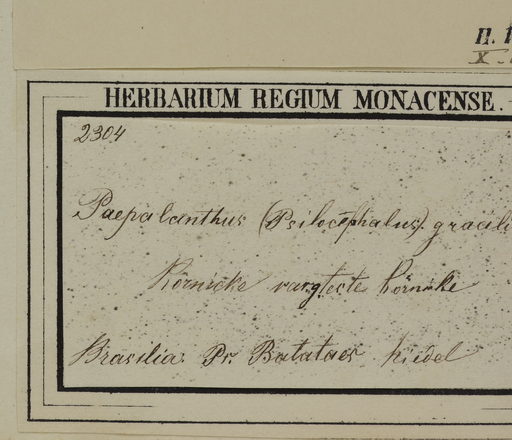 II. 1
X.
HERBARIUM REGIUM MONACENSE.
2304
Paepalanthus (Psilocephalus) gracili
Körnicke var. teste Körnicke
Brasilia. Pr. Batataes Riedel